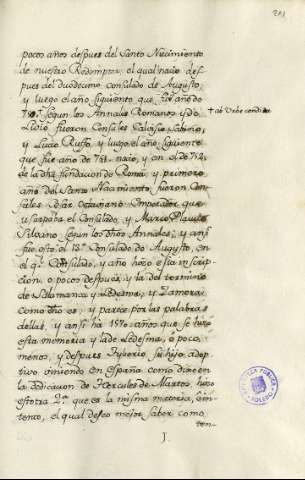 pocos años despues del Santo Nacimiento
de nuestro Redemptor, el qual nacio des-
pues del duodecimo consulado de Augusto,
y luego el año siguiente que fue año de
segun los Annales Romanos y de + ab Urbe condita
Livio fueron Consules Calvisio Sabino,
y Lucio Ruffo, y luego el año siguiente
que fue año de 751. nacio, y en el de 752,
de la dha fundacion de Roma y primero
año del Santo Nacimiento, fueron Con-
sules Cesar Octaviano Imperador que
usurpaba el Consulado, y Marco Plaucio
Silvano segun los dhos Annales; y ansi
fue este el 13º Consulado de Augusto, en
el ql. Consulado, y año hizo esta inscrip-
cion, o poco despues, y la del termino
de Salamanca y Ledesma, y Zamora,
como dho es, y parece por las palabras
dellas, y ansi ha 1570 años que se puso
esta memoria y la de Ledesma, o poco
menos, y despues Tyberio su hijo adop-
tivo viniendo en España como dice en
la dedicacion de Hercules de Martos, hizo
estotra 2ª que es la misma materia,
tento, el qual deseo mejor saber como
ten-
I.
BIBLIOTECA PUBLICA
TOLEDO